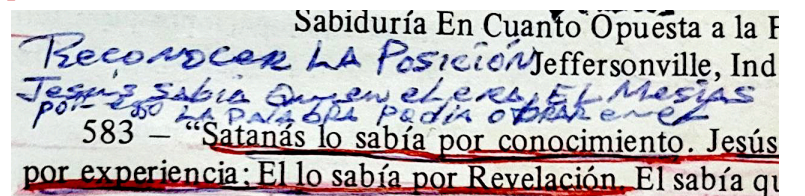 Sabiduría En Cuanto Opuesta a la F
RECONOCER LA POSICIÓN Jeffersonville, Ind
Jesús sabia Quien el era, EL Mesias
por eso LA PALABRA Podia OBRAR en el
583 – “Satanás lo sabía por conocimiento. Jesús
por experiencia: El lo sabía por Revelación. El sabía qu